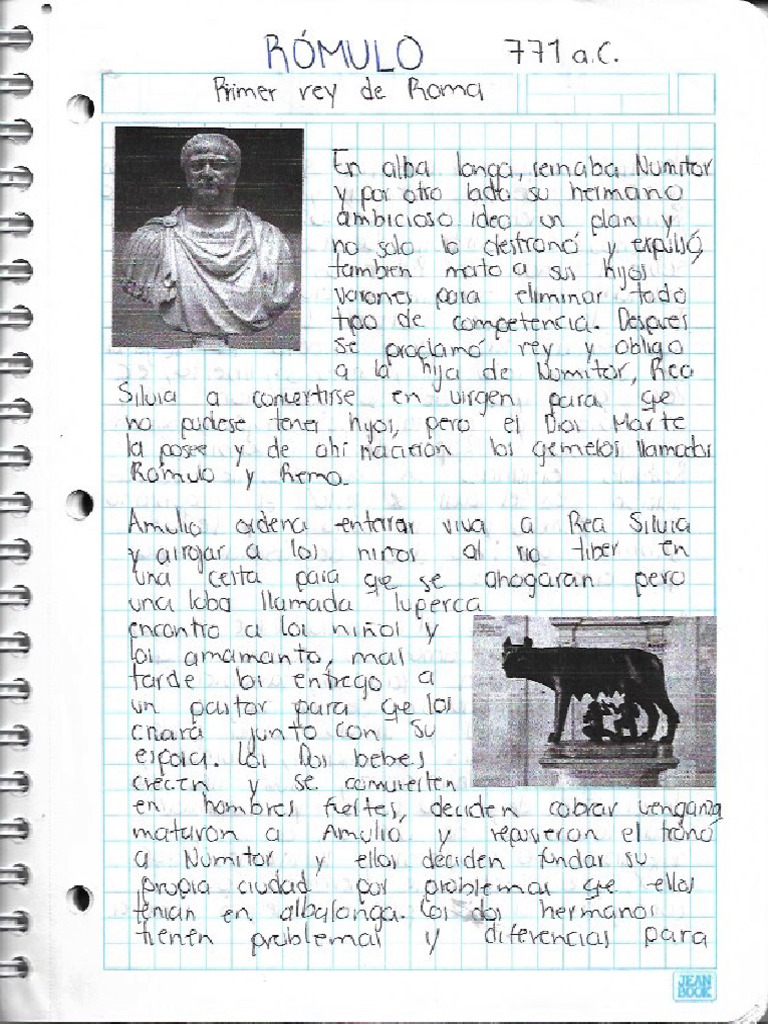 RÓMULO 771 a.C.
Primer rey de Roma
En alba longa, reinaba Numitor
y por otro lado su hermano
ambicioso ideo un plan y
no solo lo destronó y expulsó,
tambien mato a sus hijos
varones para eliminar todo
tipo de competencia. Despues
se proclamó rey y obligo
a la hija de Numitor, Rea
Silvia a convertirse en virgen para qe
no pudiese tener hijos, pero el Dios Marte
la posee y de ahi nacieron los gemelos llamados
Rómulo y Remo.
Amulio ordena enterrar viva a Rea Silvia
y arrojar a los niños al rio tiber en
una cesta para qe se ahogaran pero
una loba llamada luperca
encontro a los niños y
los amamanto, mas
tarde los entrego a
un pastor para qe los
criara junto con su
esposa. Los Dos bebes
crecen y se convierten
en hombres fuertes, deciden cobrar venganza
mataron a Amulio y repusieron el trono
a Numitor y ellos deciden fundar su
propia ciudad por problemas qe ellos
tenian en albalonga. Los dos hermanos
tienen problemas y diferencias para
JEAN
BOOK